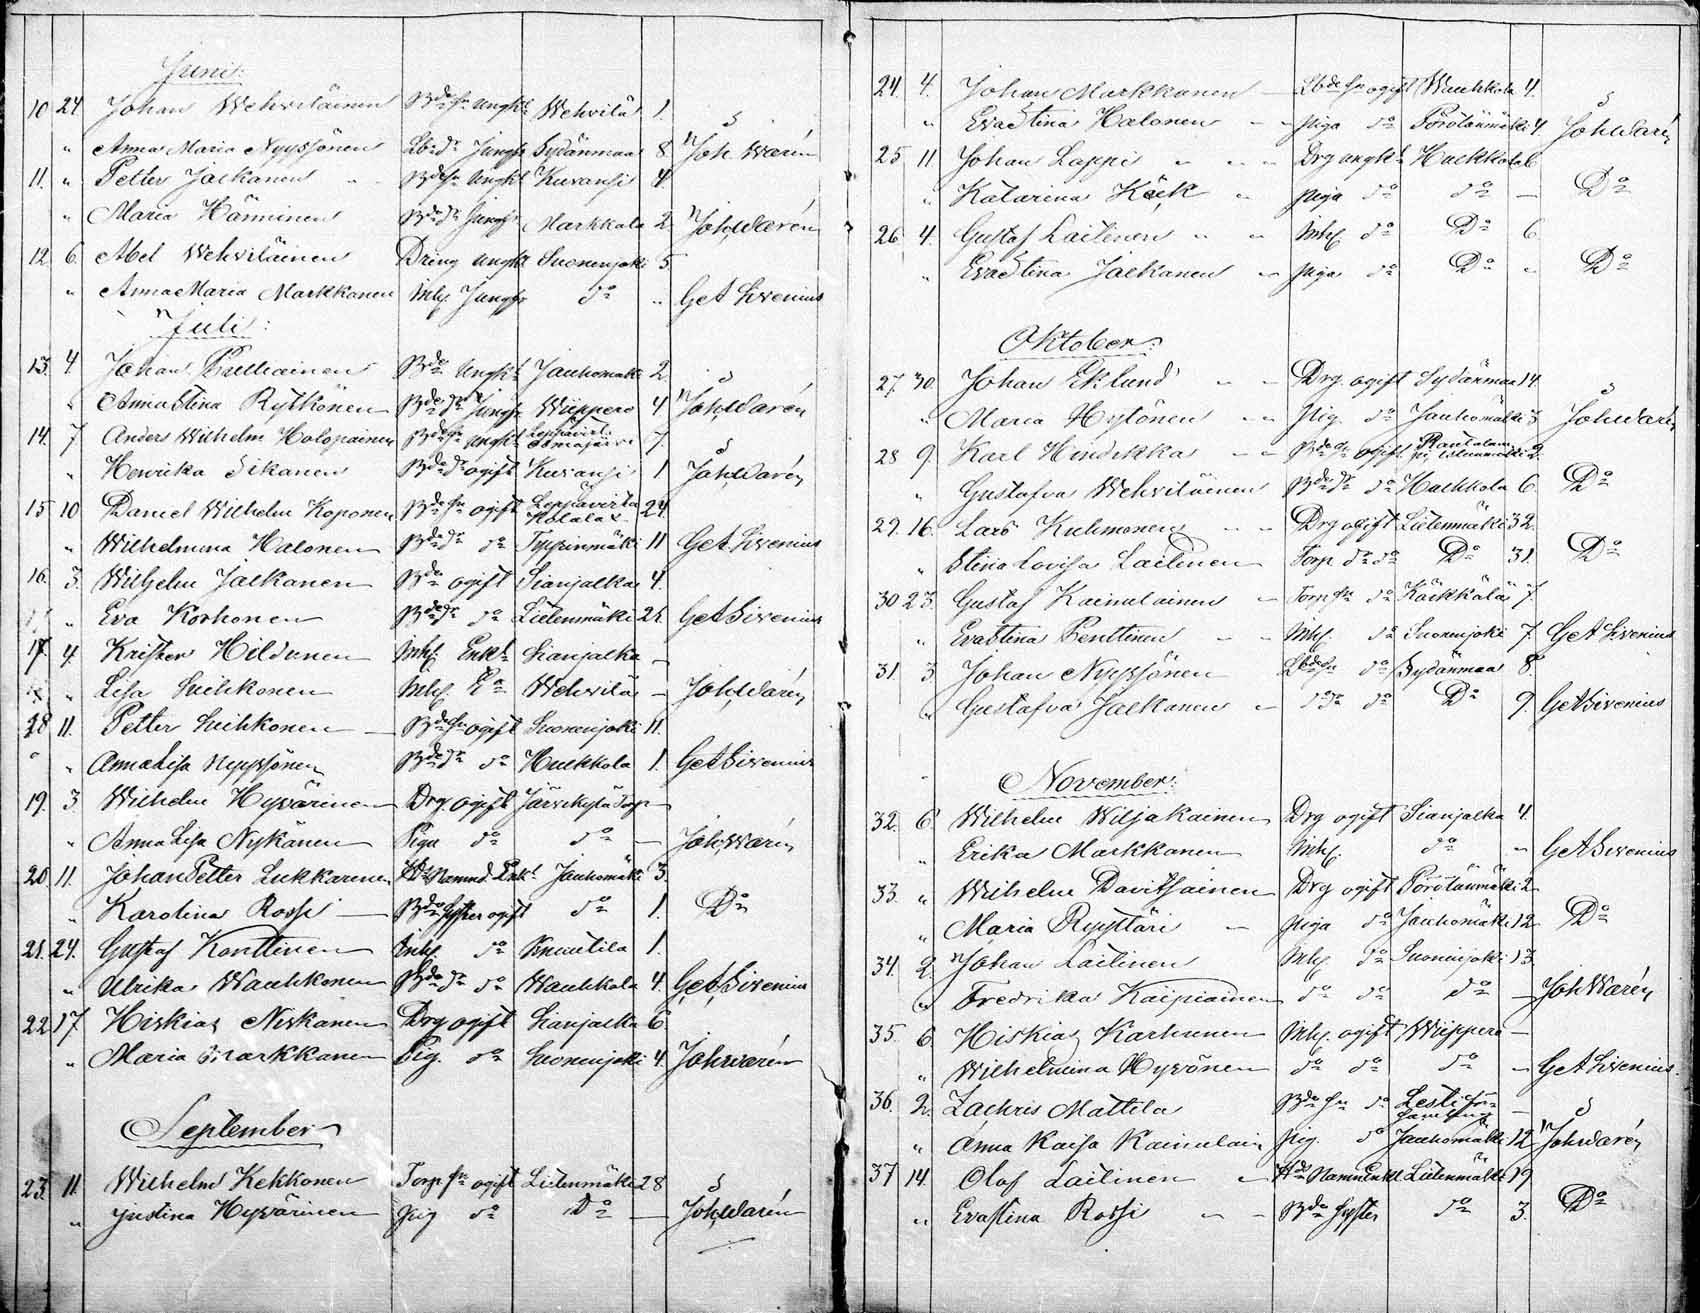 Juni:
10 24 Johan Wehviläinen Bde sn Ungkl Wehvilä 1.
" Anna Maria Nyyssönen Lbde dr Jungfr Sydänmaa 8 Joh Warén
11. " Petter Jalkanen Bdesn Ungkl Kuvansi 4.
" Maria Hänninen Bdedr Jungfr Markkala 2 Joh. Warén
12. 6. Abel Wehviläinen Dräng Ungkl Suonenjoki 5
" Anna Maria Markkanen Inhs Jungfr do " G A Sirenius
Juli:
13. 4 Johan Pulliainen Bde Ungkl Jauhomäki 2
" Anna Stina Rytkönen Bdedr Jungfr Wiippero 4 Joh. Warén
14. 7. Anders Wilhelm Holopainen Bdesn Ungkl Leppävirta 7.
" Henrika Sikanen Bdedr ogift Kuvansi 1 Joh. Warén
15 10 Daniel Wilhelm Koponen Bde sn ogift Leppävirta 24.
" Wilhelmina Halonen Bdedr do Tyyrinmäki 11 G A Sirenius
16. 3. Wilhelm Jalkanen Bde ogift Sianjalka 4.
" Eva Korhonen Bdedr do Lietenmäki 21. G A Sirenius
17. 4. Krister Hildunen Inhs. Enkl Sianjalka —
" Lisa Suihkonen Inhs. Ea Wehvilä — Joh. Warén
18 11. Petter Suihkonen — Bdesn ogift Suonenjoki 11.
" Anna Lisa Nyyssönen Bdedr do Hulkkola 1. G A Sirenius
19. 3. Wilhelm Hyvärinen Drg. ogift Järvikylä Torp
" Anna Lisa Nykänen Piga do do — Joh. Warén
20 11. Johan Petter Lukkarinen Enkl Jauhomäki 3.
" Karolina Rossi — Bde syster ogift do 1. Do
21. 24. Gustaf Konttinen Inhs do Knuutila 1.
" Ulrika Wauhkonen Bdedr do Wauhkola 4. G A Sirenius
22 17. Hiskias Niskanen Drg ogift Sianjalka 6
" Maria Markkanen Pig. do Suonenjoki 4. Joh Warén
September
23. 11. Wilhelm Kekkonen Torp. sn ogift Lietenmäki 28
" Justina Hyvärinen Pig do Do — Joh. Warén
24. 4. Johan Markkanen — Lbdesn ogift Wauhkola 4.
" Eva Stina Halonen " " Piga do Pörölänmäki 4. Joh Warén
25 11 Johan Lappi " " " Drg ungkl Hulkkola 6
" Katarina Käck " Piga do do — Do
26. 4. Gustaf Laitinen " " Inhs do Do 6.
" Eva Stina Jalkanen " Piga do Do " Do
Oktober:
27. 30. Johan Eklund " " Drg. ogift Sydänmaa 14.
" Maria Hytönen " " Pig. do Jauhomäki 3 Joh Warén
28 9. Karl Hindikka " " Bdedr ogift Rautalampi 2.
" Gustafva Wehviläinen Bdedr do Hulkkola 6. Do
29. 16. Lars Kuhmonen " " Drg ogift Lietenmäki 32.
" Stina Lovisa Laitinen Torp dr do Do 31. Do
30 23. Gustaf Kainulainen " Torp. sn do Käckkälä 7.
" Eva Stina Penttinen " " Inhs. do Suonenjoki 7. G A Sirenius
31. 3 Johan Nyyssönen Lbdesn do Sydänmaa 8.
" Gustafva Jalkanen " do dr do Do 9. G A Sirenius
November:
32. 6 Wilhelm Wiljakainen Drg ogift Sianjalka 4.
" Erika Markkanen Inhs. do " G A Sirenius
33. " Wilhelm Davitsainen Drg ogift Pörölänmäki 2
" Maria Ryyttäri " Piga do Jauhomäki 12 Do
34. 2. Johan Laitinen Inhs do Suonenjoki 13.
" Fredrika Kaipiainen do do do — Joh Warén
35. 6 Hiskias Karhunen Inhs. ogift Wiippero —
" Wilhelmina Hyvönen do do do " G A Sirenius.
36. 2. Zachris Mattila Bde sn do Lesti —
" Anna Kaisa Kainulain Pig. do Jauhomäki 12 Joh Warén
37 14. Olof Laitinen " Nämnd Enkl Lietenmäki 19
" Eva Stina Rossi " " Bde syster do 3. Do